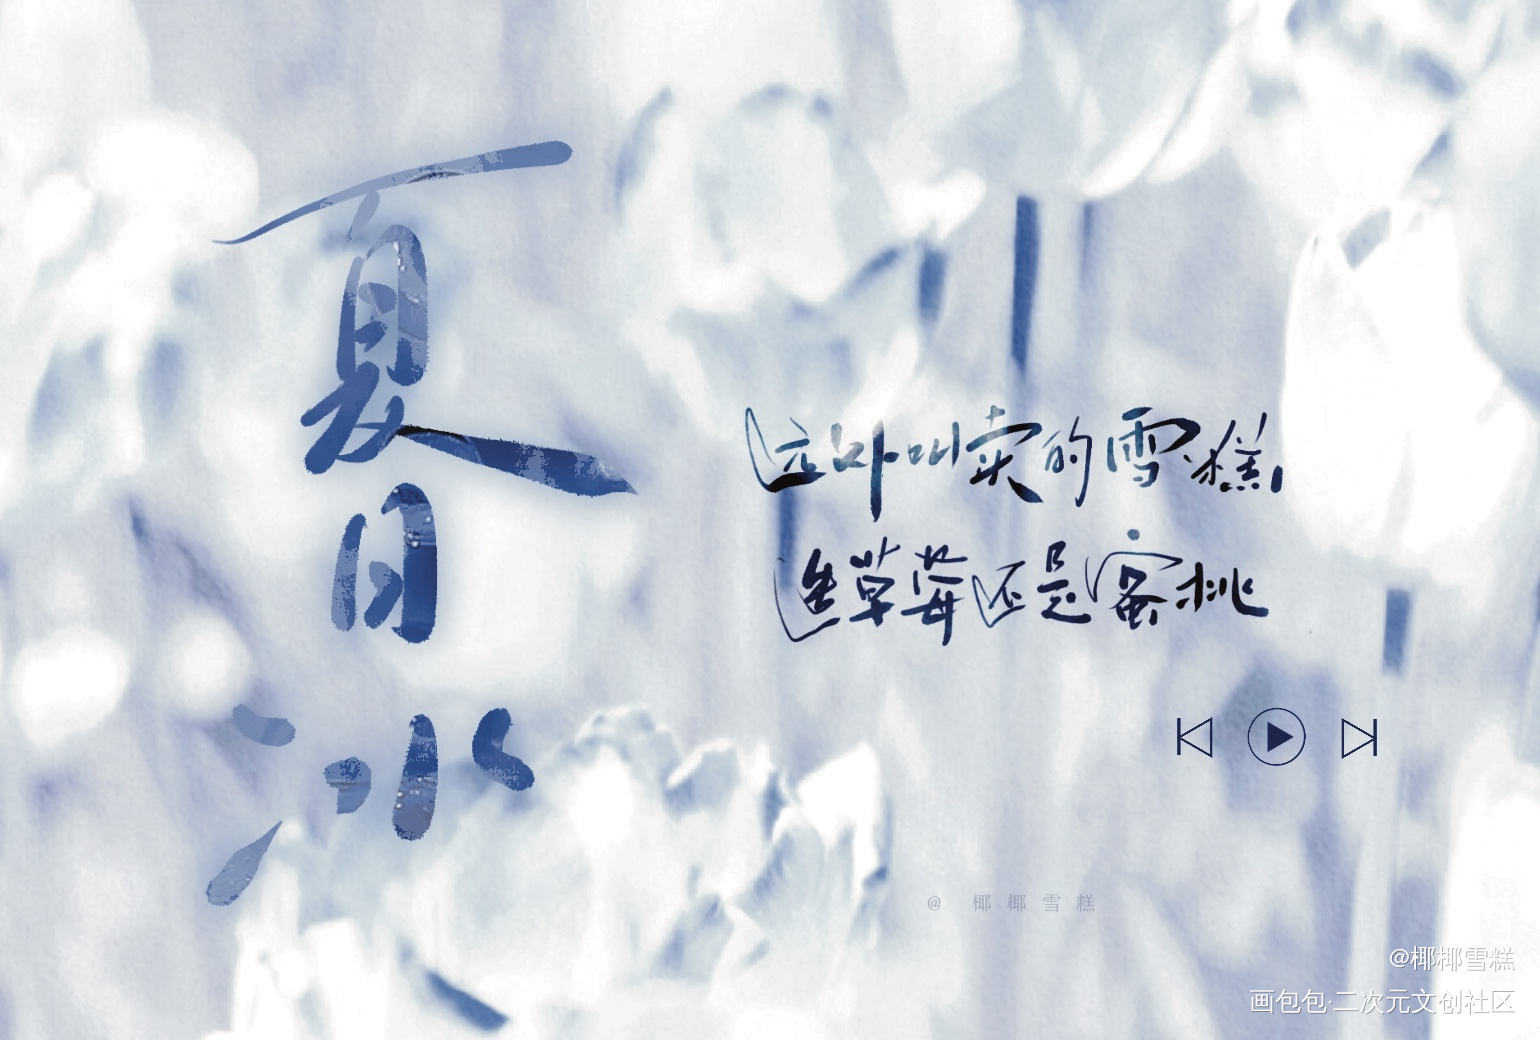 夏日冰
远处叫卖的雪糕，
选草莓还是蜜桃
@ 椰椰雪糕
@椰椰雪糕
画包包·二次元文创社区